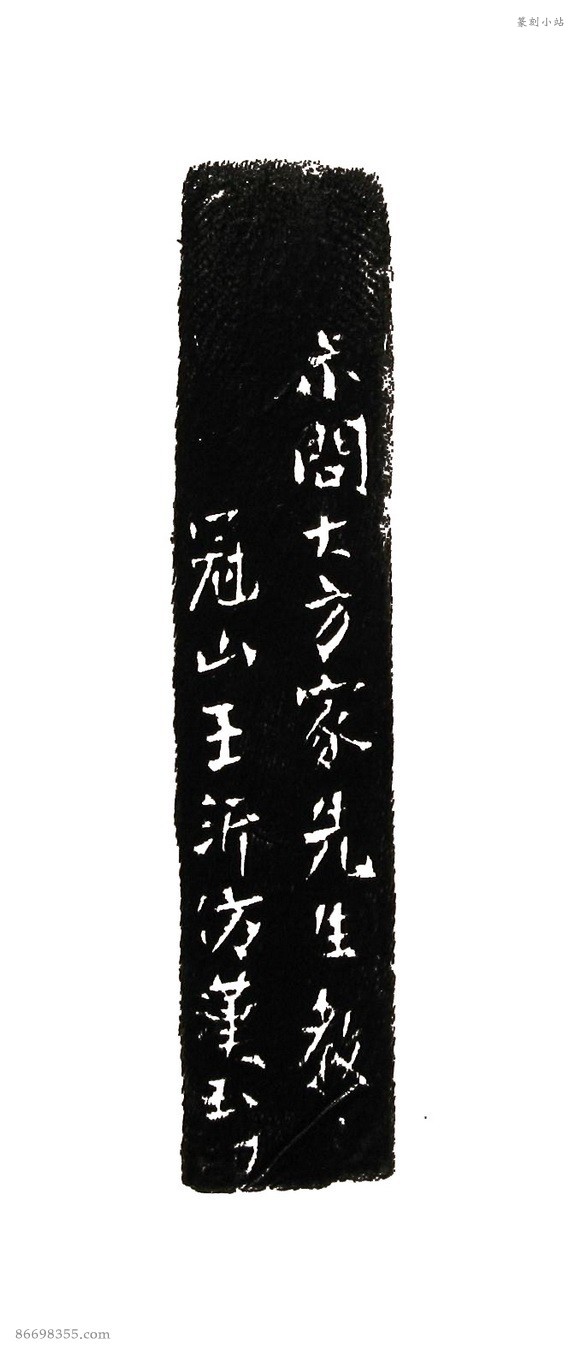 篆刻小站
示問大方家先生教
冠山王沂仿漢玉印
86698355.com